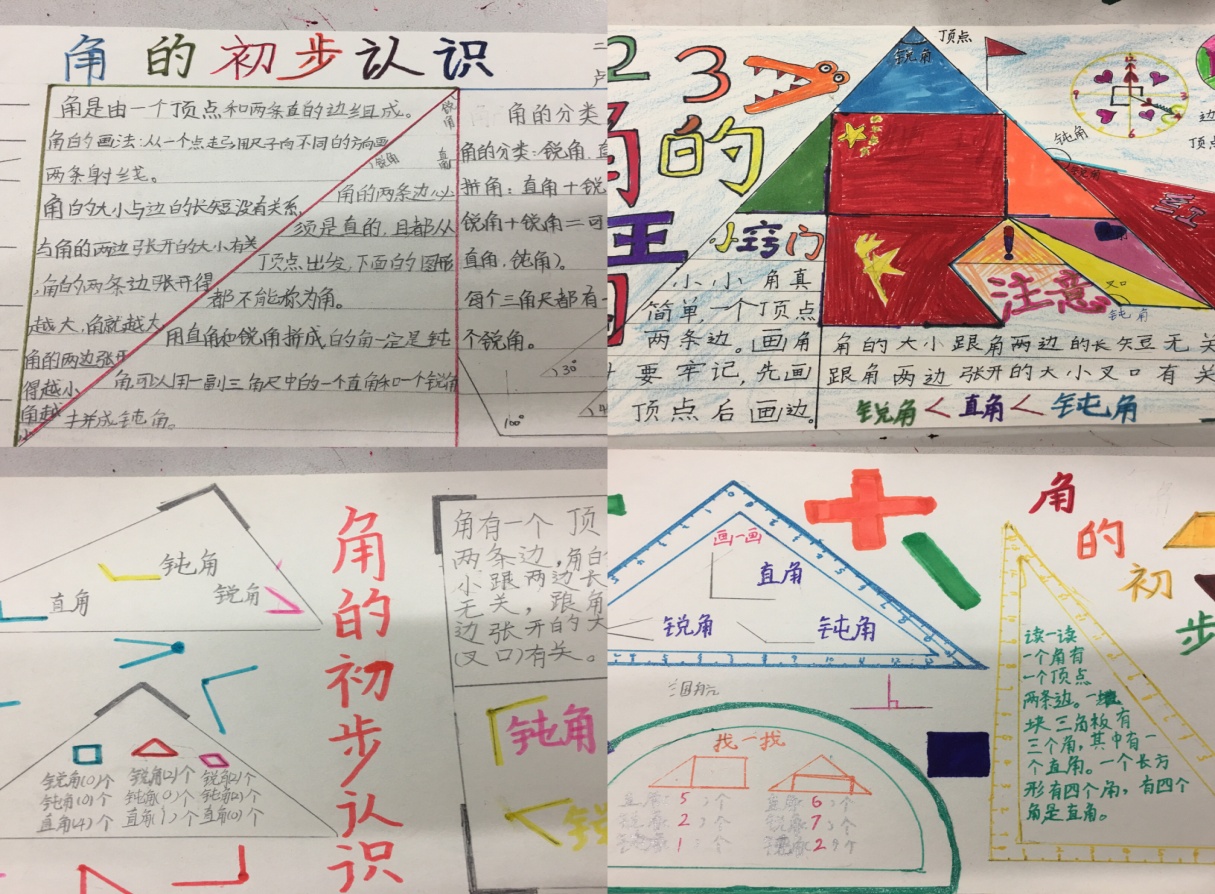 角的初步认识
角是由一个顶点和两条直的边组成。
角的画法:从一个点起用尺子向不同的方向画
两条射线。
角的大小与边的长短没有关系,
与角的两边张开的大小有关
,角的两条边张开得
越大,角就越大
角的两边张开
得越小
角越
小
锐角
直
锐角
角的两条边必
须是直的,且都从
顶点出发,下面的图形
都不能称为角。
用直角和锐角拼成的角一定是钝
角可以用一副三角尺中的一个直角和一个锐角
拼成钝角。
角的分类
角的分类:锐角,直
拼角:直角+锐
锐角+锐角=可
直角,钝角)。
每个三角尺都有一
个锐角。
30°
100°
23
角的
王国
顶点
锐角
钝角
小窍门
小小角真
简单,一个顶点
两条边。画角
要牢记,先画
顶点后画边。
注意
叉口
钝角
角的大小跟角两边的长短无关
跟角两边张开的大小叉口有关
锐角<直角<钝角
12
3
6
边
顶点
钝角
直角
锐角
角的初步认识
锐角(0)个
钝角(0)个
直角(4)个
锐角(2)个
钝角(0)个
直角(1)个
锐角(2)个
钝角(2)个
直角(0)个
角有一个顶
两条边,角的
小跟两边长
无关,跟角
边张开的大
(叉口)有关。
钝角
锐
画一画
直角
锐角
钝角
找一找
直角 5 个
锐角 2 个
钝角 1 个
直角 6 个
锐角 7 个
钝角 2 个
角的初步
读一读
一个角有
一个顶点
两条边。一
块三角板有
三个角,其中有一
个直角。一个长方
形有四个角,有四个
角是直角。